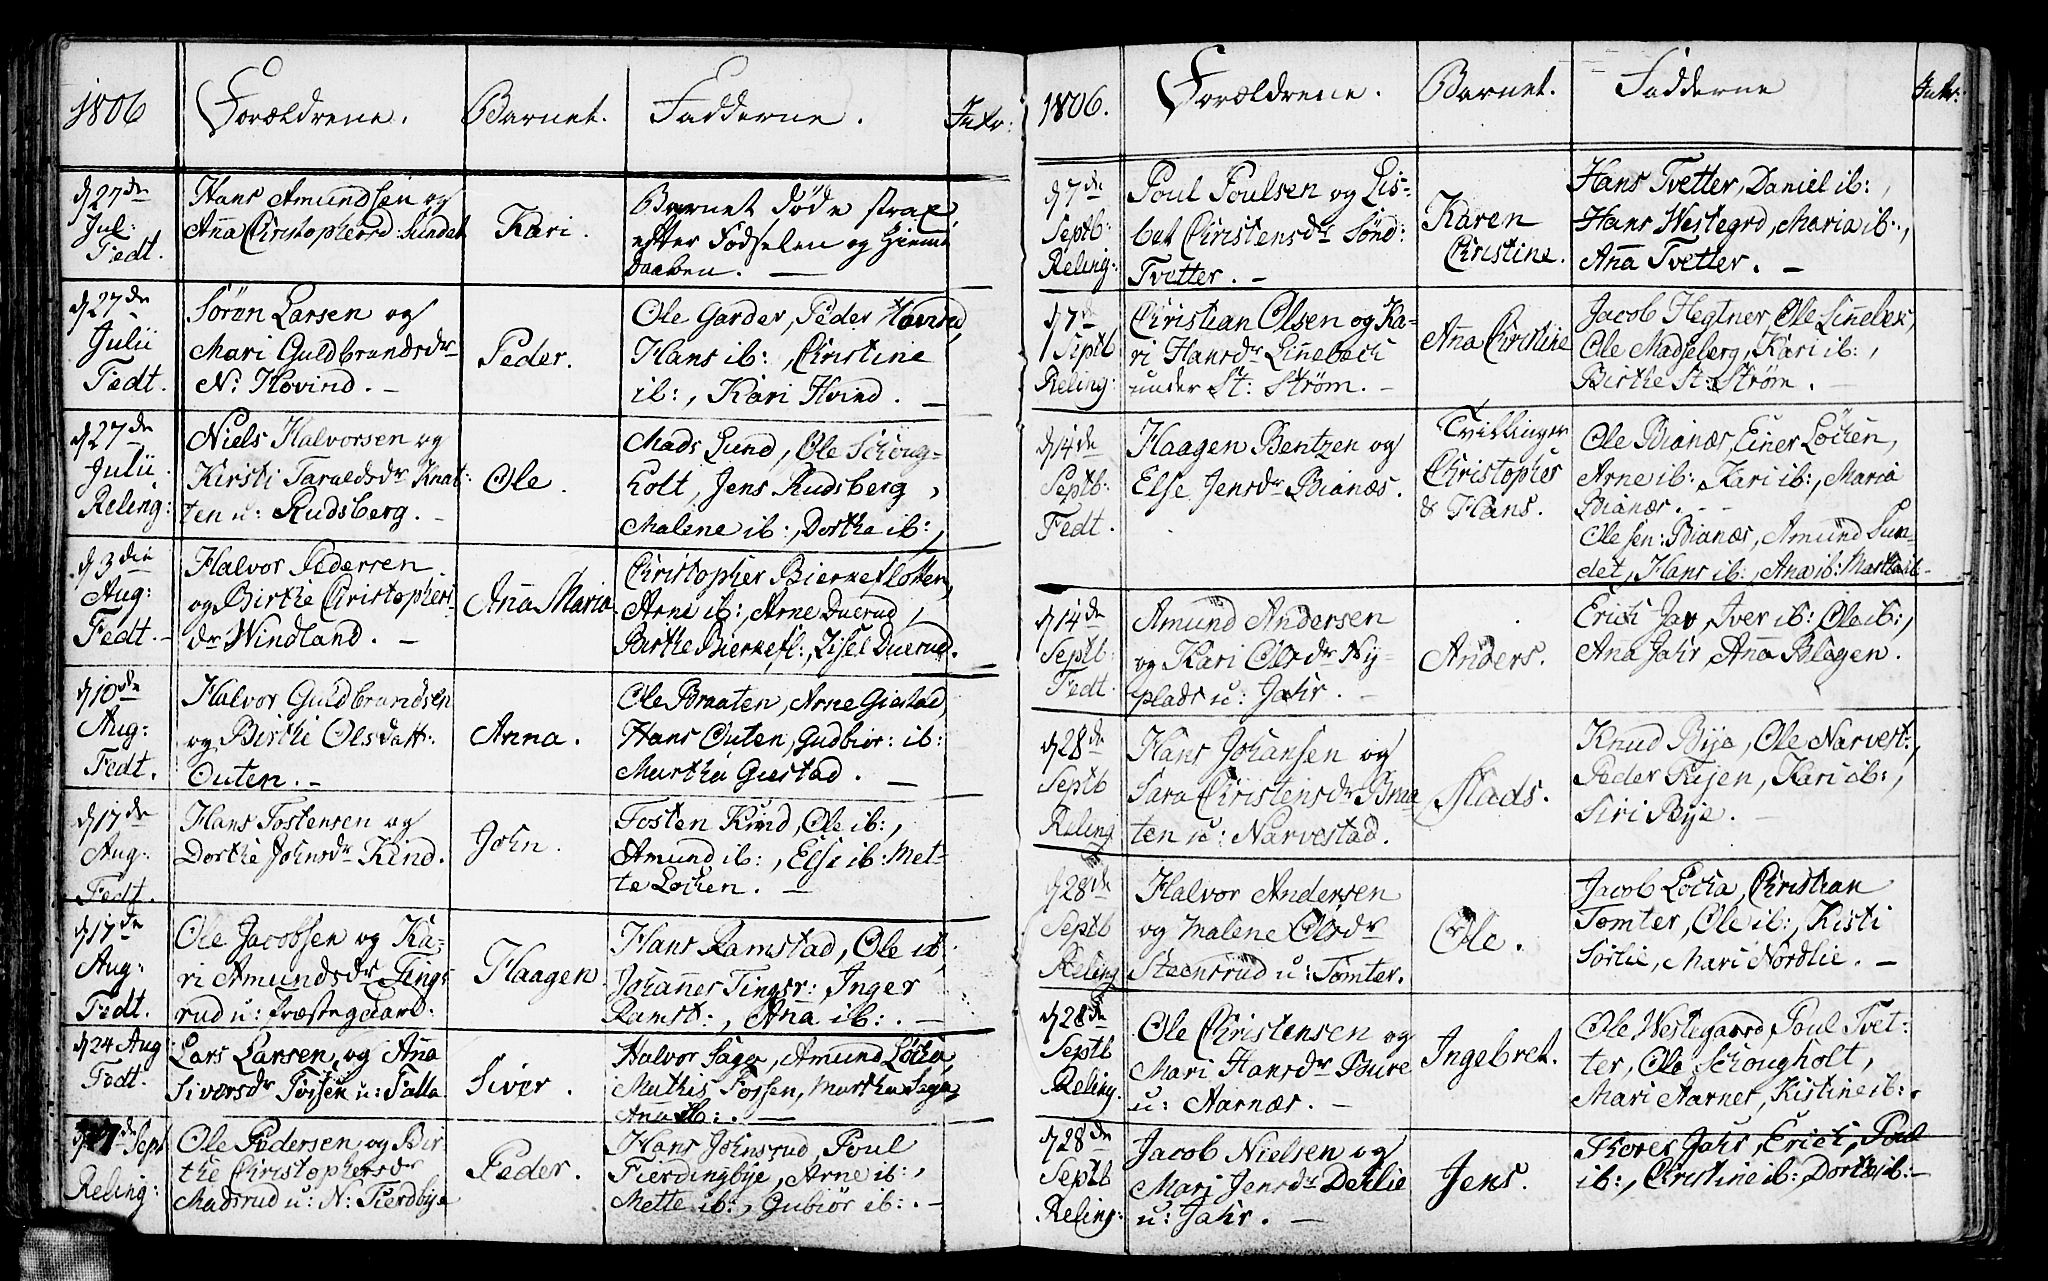 1806
Forældrene.
Barnet.
Fadderne.
Intr:
d 27de
Jul:
Fedt.
Hans Amundsen og
Aña Christophersd: Sundet
Kari.
Barnet døde strax
efter Fødselen og Hiemme
Daaben. —
d 27de
Julii
Fedt.
Søren Larsen og
Mari Guldbrandsdr
N: Hovind. —
Peder.
Ole Garder, Peder Hovind,
Hans ib:, Christine
ib:, Kari Hvind. —
d 27de
Julii
Reling:
Niels Halvorsen og
Kirsti Taraldsdr Knat-
ten u: Rudsberg. —
Ole.
Mads Lund, Ole Schoug-
holt, Jens Rudsberg,
Malene ib:, Dorthe ib:,
d 3die
Aug:
Fedt. —
Halvor Pedersen
og Birthe Christophers-
dr Windland. —
Aña Maria.
Christopher Bierkefloten,
Arne ib:, Arne Duerud,
Birthe Bierkefl:, Lisel Duerud.
d 10de
Aug:
Fedt.
Halvor Guldbrandsen
og Birthe Olsdatt:
Outen. —
Anna.
Ole Braaten, Arne Giestad,
Hans Outen, Gudbiør: ib:
Marthe Giestad. —
d 17de
Aug:
Fedt.
Hans Tostensen og
Dorthe Johnsdr Kind.
John.
Tosten Kind, Ole ib:,
Amund ib:, Else ib: Met-
te Løchen. —
d 17de
Aug:
Fedt.
Ole Jacobsen og Ka-
ri Amundsdr Tings-
rud u: Præstegaard:
Haagen.
Hans Ramstad, Ole ib:
Johañes Tingsr:, Inger
Ramst:, Aña ib:. —
d 24 Aug:
Fedt.
Lars Larsen og Aña
Siversdr u: Falla
Siver.
Halvor Sagge, Amund Løcha,
Mathis Fossen, Marthe Sagge,
Aña ib:. —
d 7de Sept
Reling:
Ole Pedersen og Bir
the Christophersdr
Madsrud u: N: Fierdbye
Peder.
Hans Johnsrud, Poul
Fierdingbye, Arne ib:,
Mette ib:, Gubiør ib:. —
1806.
Forældrene.
Barnet.
Fadderne
Intr:
d 7de
Septb:
Reling:
Poul Poulsen og Lis-
bet Christensdr Sønd:
Tvetter. —
Karen
Christine.
Hans Tvetter, Daniel ib:,
Hans Westegrd, Maria ib:,
Aña Tvetter. —
d 7de
Septb
Reling:
Christian Olsen og Ka-
ri Hansdr Liñebech
under St: Strøm. —
Aña Christine
Jacob Hegtner, Ole Liñebek,
Ole Madseberg, Kari ib:,
Birthe St: Strøm. —
d 14de
Septb:
Fedt.
Haagen Bentzen og
Else Jensdr Bianæs.
Tvillinger
Christopher
& Hans.
Ole Bianæs, Einer Løchen,
Arne ib:, Kari ib:, Maria
Bianæs. —
Ole sen: Bianæs, Amund Sun
det, Hans ib:, Aña ib: Martha ib: —
d 14de
Septb:
Fedt.
Amund Andersen
og Kari Olsdr Ny-
plads u: Jahr. —
Anders.
Erich Jar, Iver ib: Ole ib:,
Aña Jahr, Aña Blegen.
d 28de
Septb
Reling
Hans Johansen og
Sara Christensdr Braa
ten u: Narvestad.
Mads.
Knud Bye, Ole Narvest:,
Peder Rijen, Kari ib:,
Siri Bye. —
d 28de
Septb
Reling
Halvor Andersen
og Malene Olsdr
Steensrud u: Tomter.
Ole.
Jacob Locha, Christian
Tomter, Ole ib:, Kisti
Sørlie, Mari Nordlie. —
d 28de
Septb
Reling.
Ole Christensen og
Mari Hansdr Bure
u: Aarnæs. —
Ingebret.
Ole Westegaard, Poul Tvet-
ter, Ole Schougholt,
Mari Aarnes, Kistine ib:.
d 28de
Septb
Reling:
Jacob Nielsen og
Mari Jensdr Dehlie
u: Jahr. —
Jens.
Kores Jahr, Erich, Poul
ib:, Christine ib:, Dorthe ib: —